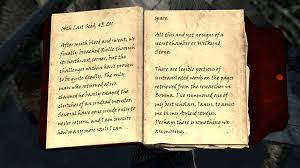 14th Last Seed, 4E 201
After much blood and sweat, we
finally breached Rielle through
its northwest corner, but the
challenges within have proven
to be quite deadly. The only
man who returned alive
claimed to have escaped the
clutches of an undead monster.
Several have gone inside only to
never return, and I am unsure
how many more souls I can
spare.
All this and yet no signs of a
secret chamber or Welkynd
Stone.
There are legible portions of
untranslated words on the pages
retrieved from the researcher in
Bruma. I've summoned one of
my best scholars, to
me in my Ayleid studies.
Perhaps there is something we
are missing...